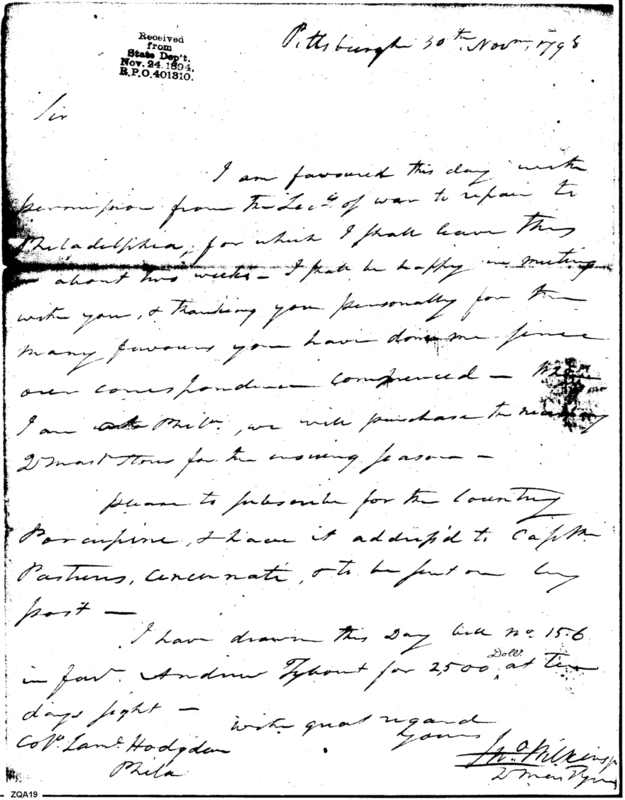 Received
from
State Dep't.
Nov. 24. 1894.
R.P.O. 401310.
Pittsburgh 30th Novr. 1798
Sir
I am favoured this day with
permission from the Secy of war to repair to
Philadelphia, for which I shall leave this
in about two weeks — I shall be happy in meeting
with you, & thanking you personally for the
many favours you have done me since
our correspondence commenced — When
I am at Phila., we will purchase the necessary
Qr Mast Stores for the ensuing season —
please to subscribe for the Country
Porcupine, & have it address'd to Captn
Pasteurs, Cincinnati, & to be sent on by
post —
I have drawn this Day bill no. 156
in favr. Andrew Tybout for 2,500 Dollr at two
days sight —
with great regard
Yours
Jno. Wilkins jr
Qr Mas
Colo. Saml. Hodgdon
Phila
ZQA19